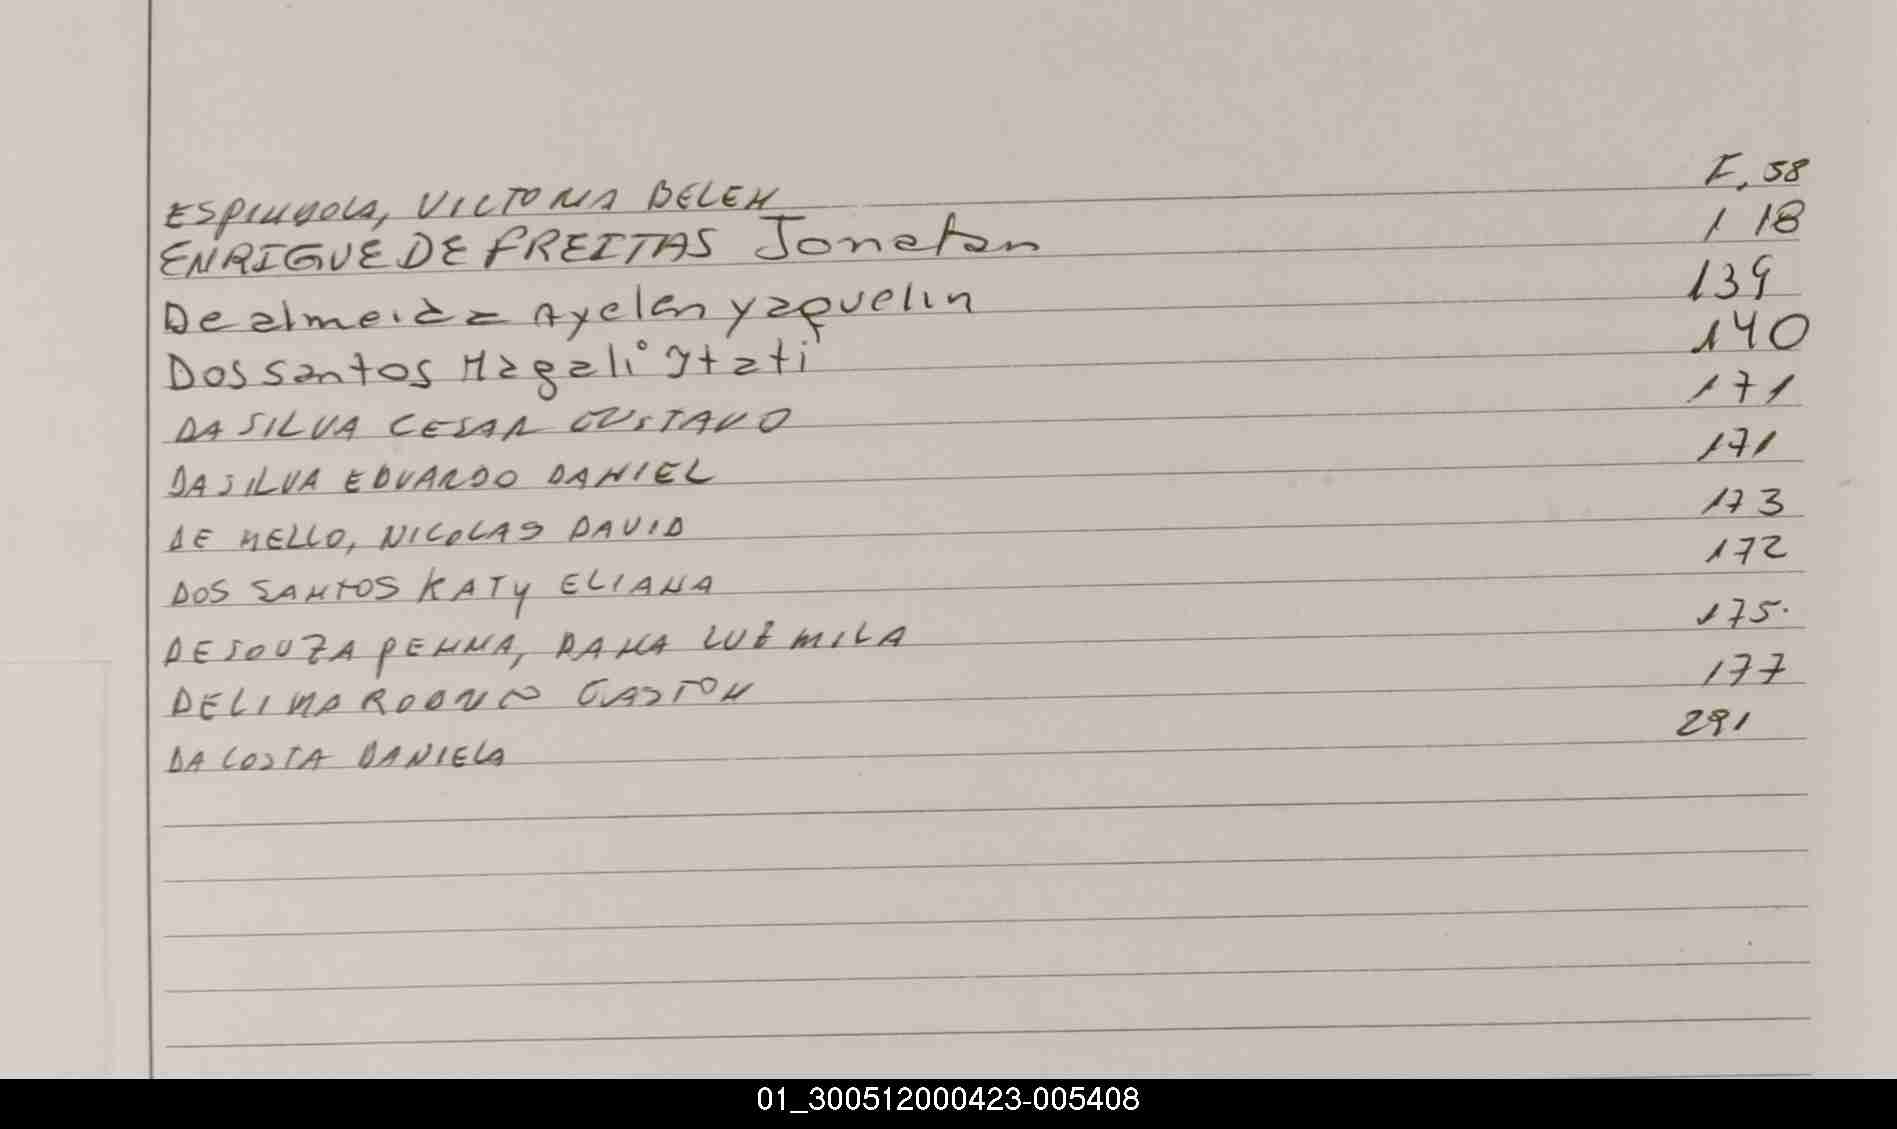 ESPINDOLA, VICTORIA BELEN F. 58
ENRIGUE DE FREITAS Jonatan 118
De almeida Ayelen yaquelin 139
Dos santos Magali Itati 140
DA SILVA CESAR GUSTAVO 171
DA SILVA EDUARDO DANIEL 171
DE MELLO, NICOLAS DAVID 173
DOS SANTOS KATY ELIANA 172
DE SOUZA PENNA, DANA LUZ MILA 175.
DE LIMA RODRIGO GASTON 177
DA COSTA DANIELA 291
01_300512000423-005408